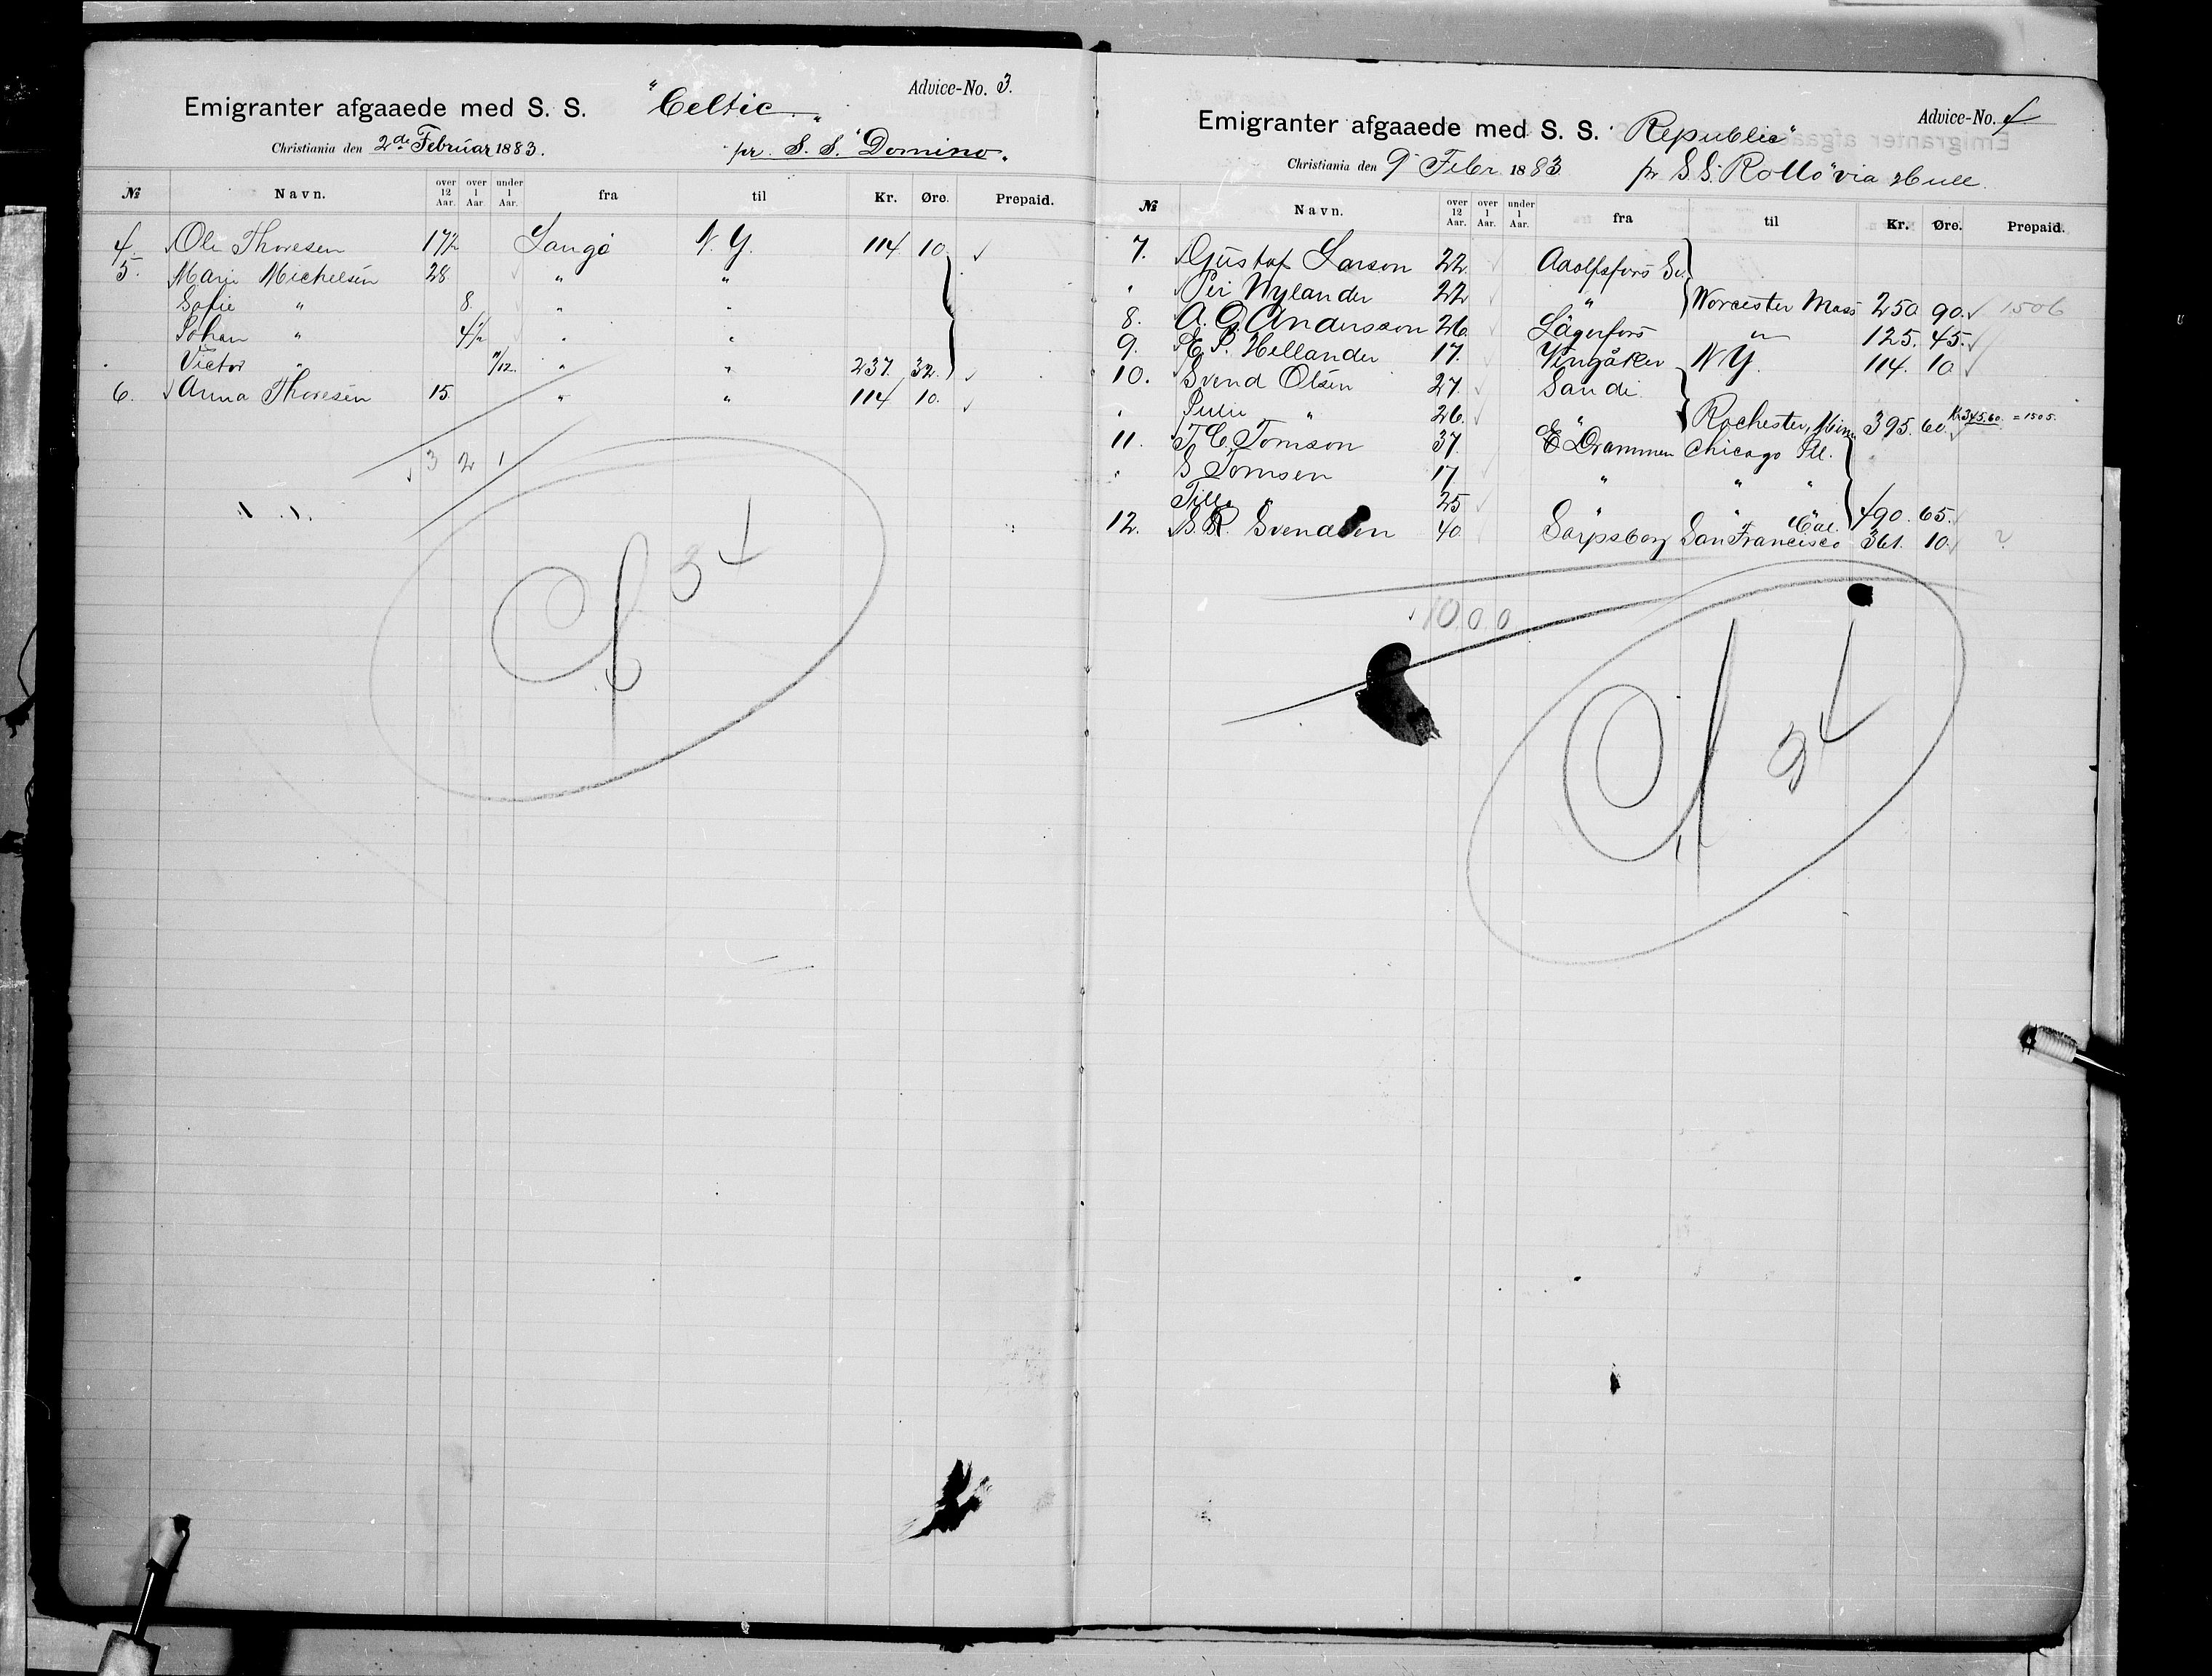 Advice-No. 3.
Emigranter afgaaede med S. S. "Celtic"
Christiania den 2de Februar 1883. pr. S. S. "Domino"
№ Navn. over 12 Aar. over 1 Aar. under 1 Aar. fra til Kr. Øre. Prepaid.
4. Ole Thoresen 17½ Langö N.Y. 114 10
5. Marie Michelsen 28 " "
Sofie " 8. " "
Johan " 4½ " "
Victor " 11/12 " " 237 32
6. Anna Thoresen 15 " " 114 10.
3 2 1
Advice-No. 4
Emigranter afgaaede med S. S. "Republic"
Christiania den 9 Febr 1883 pr S.S. "Rollo" via Hull.
№ Navn. over 12 Aar. over 1 Aar. under 1 Aar. fra til Kr. Øre. Prepaid.
7. Gustaf Larson 22 Adolfsfors Sv.
" Per Nylander 22 " Worcester Mass 250. 90. 1506
8. A. G. Andersson 26 Lägerfors " 125. 45.
9. E. P. Hellander 17. Vingåker N Y. 114. 10
10. Svend Olsen 27. Sande
" " 26. " Rochester, Minn 395. 60. Kr 345.60. = 1505.
11. T. C. Tomson 37. Drammen Chicago Ill.
" S Tomsen 17 " " "
Tilla " 25 " " 490. 65.
12. S. R. Svendsen 40 Sarpsborg San Francisco Cal. 361. 10. ?
10 0 0